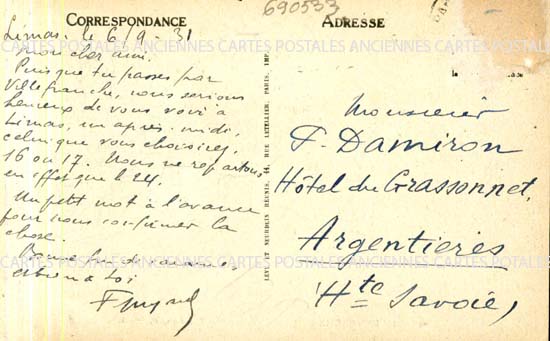 CORRESPONDANCE
690533
ADRESSE
Limas, le 6/9-31
Mon cher ami.
Puisque tu passes par
Villefranche, nous serions
heureux de vous voir à
Limas, un après-midi,
celui que vous choisirez,
16 ou 17. Nous ne repartons
en effet que le 24.
Un petit mot à l'avance
pour nous confirmer la
chose.
et bien à toi
Monsieur
F. Damiron
Hôtel du Grassonnet,
Argentières
Hte Savoie,
LES MEUBLES RÉUNIS, 44, RUE LETELLIER, PARIS, IMP.
CARTES POSTALES ANCIENNES CARTES POSTALES ANCIENNES CARTES POSTALES